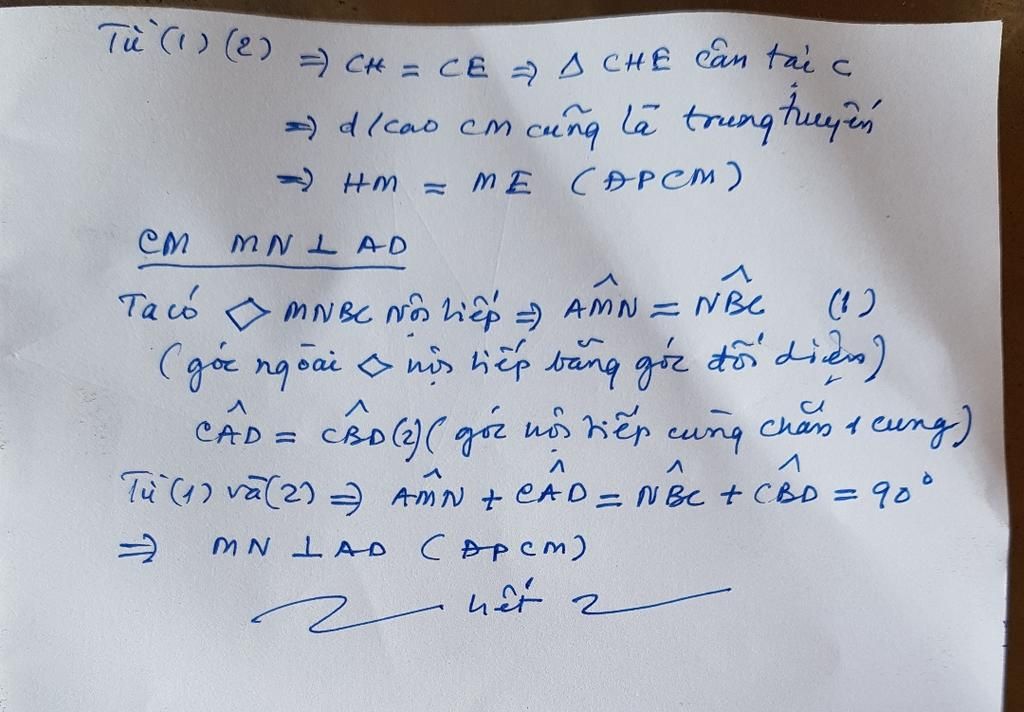 Từ (1) (2) => CH = CE => Δ CHE cân tại C
=> đ/cao CM cũng là trung tuyến
=> HM = ME (ĐPCM)
CM MN ⊥ AD
Ta có ◇ MNBC nội tiếp => AM̂N = NB̂C (1)
(góc ngoài ◇ nội tiếp bằng góc đối diện)
CÂD = CB̂D (2) (góc nội tiếp cùng chắn 1 cung)
Từ (1) và (2) => AM̂N + CÂD = NB̂C + CB̂D = 90°
=> MN ⊥ AD (ĐPCM)
hết